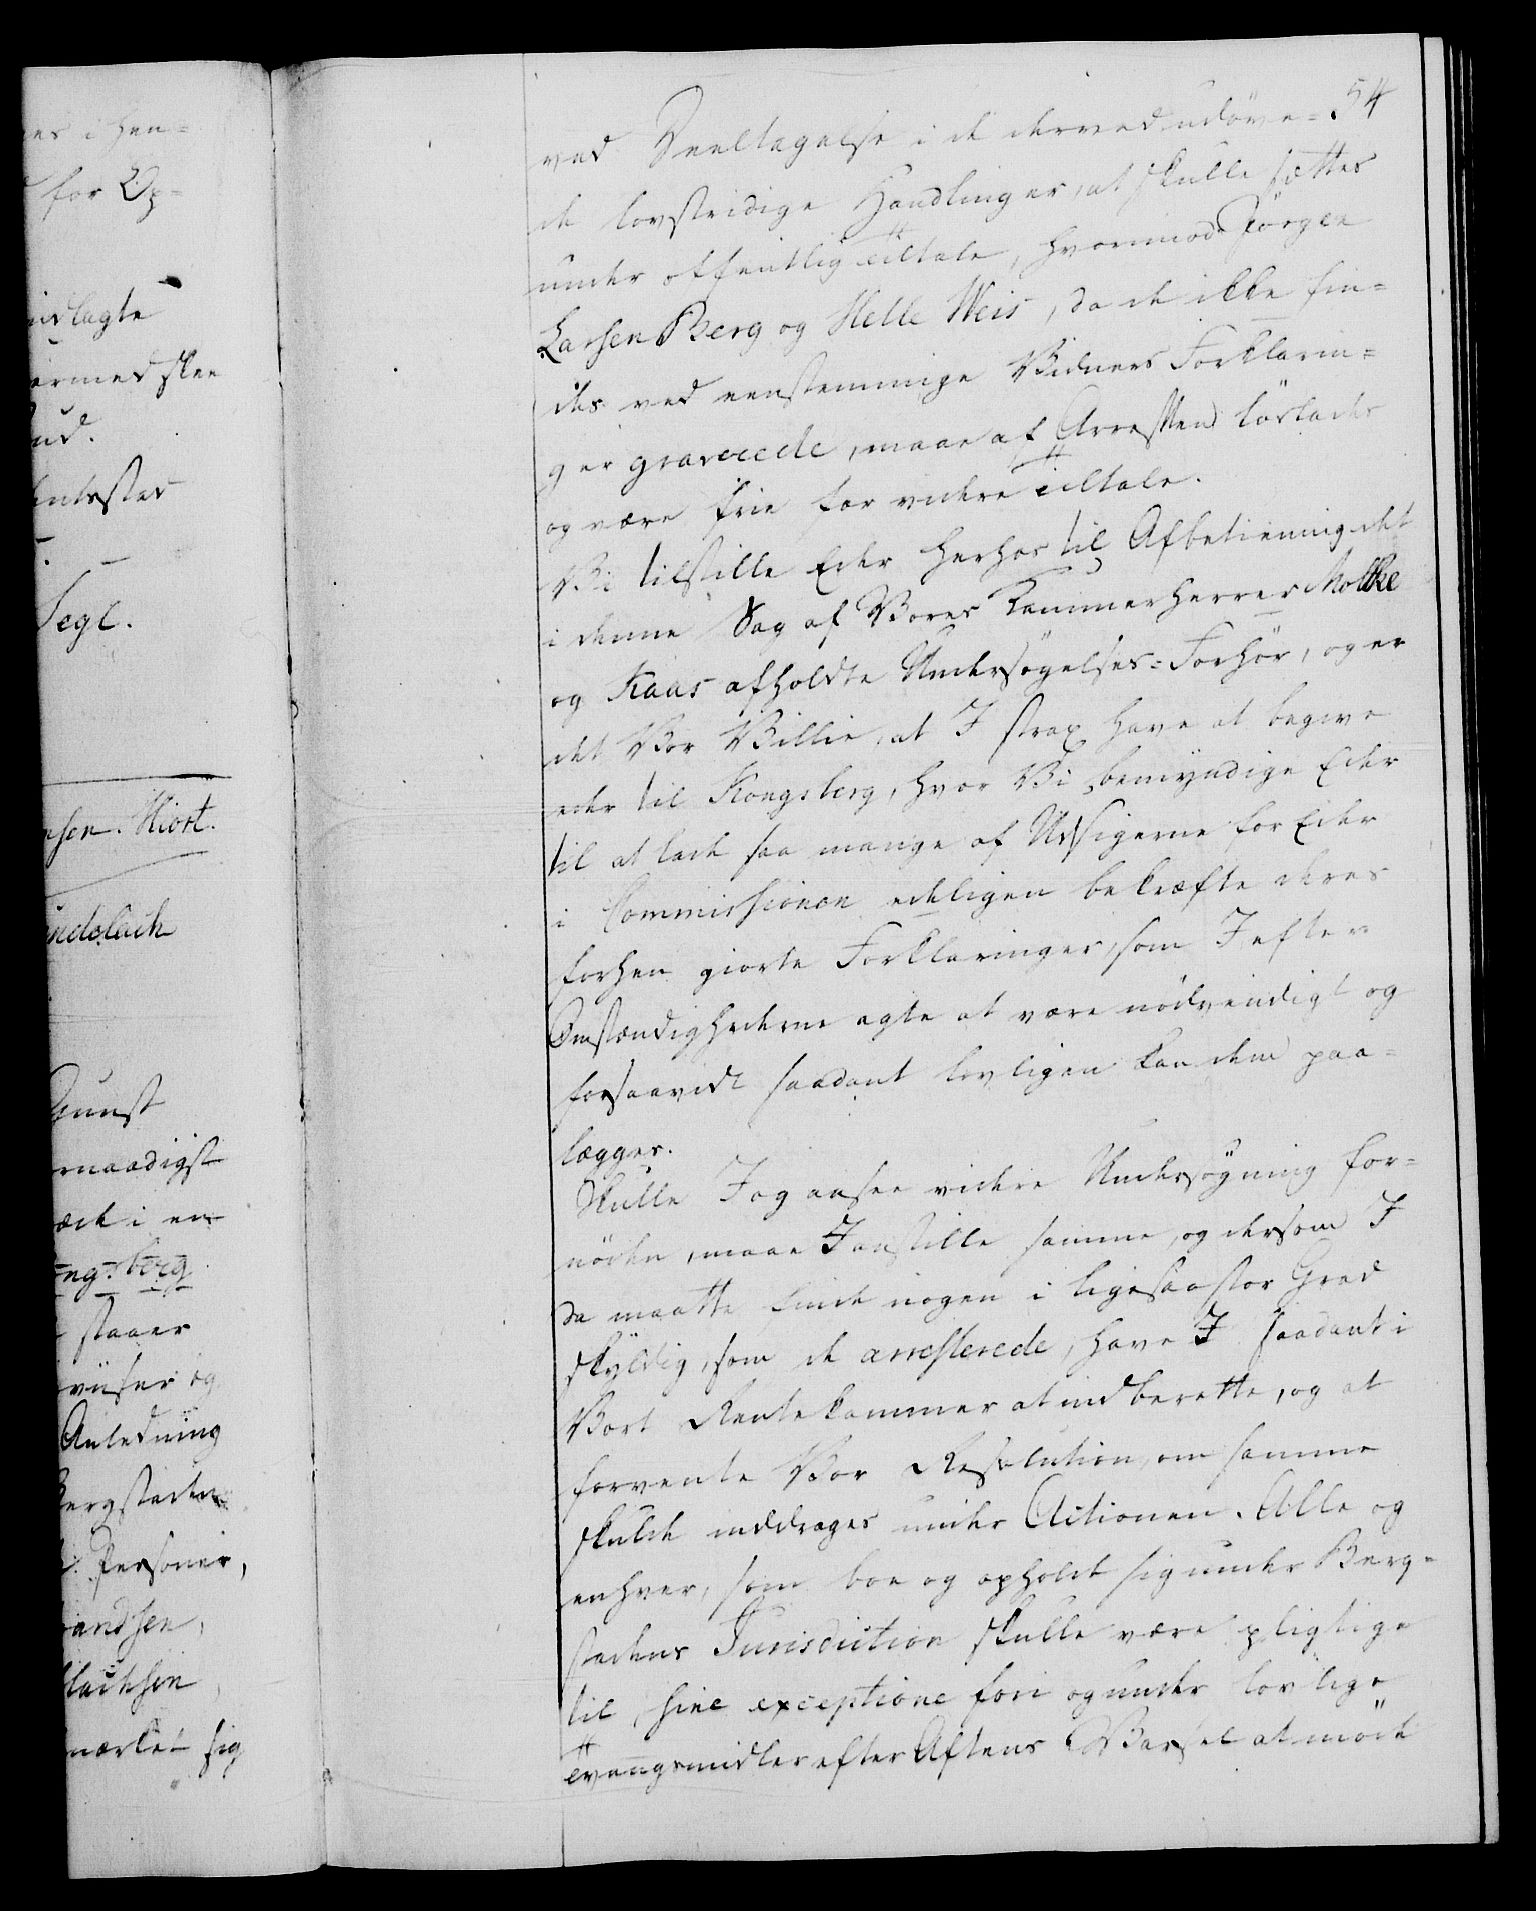 es i hen=
for Op=
indlagte
ermed skee
ud.
entested
Segl.
nsen. Hiort.
indelach
Gunst
rnaadigst
ede i en
ngsberg
staaer
viiser og
Anledning
Bergstaden
Personer,
andsen,
lachsen,
mærket sig
54
ved Deeltagelse i de derved udöve=
de lovstridige Handlinger, at skulle sættes
under offentlig Tiltale, hvorimod Jörgen
Larsen Berg og Helle Weis, da de ikke fin=
des ved eenstemmige Vidners Forklarin=
ger graverede, maae af Arresten löslades
og være frie for videre Tiltale.
Vi tilstille Eder herhos til Afbetienning det
i denne Sag af Vores Kammerherrer Moltke
og Kaas afholdte Undersögelses=Forhör, og er
det Vor Villie, at I strax have at begive
eder til Kongsberg, hvor Vi bemyndige Eder
til at lade saa mange af Udsigerne for Eder
i Commissionen edeligen bekræfte deres
forhen giorte Forklaringer, som I efter
Omstændighederne agte at være nödvendigt og
forsaavidt saadant lovligen kan dem paa=
lægges.
Skulle I og ansee videre Undersögning for=
nöden, maae I anstille samme, og dersom I
da maatte finde nogen i ligesaa stor Grad
skyldig, som de arresterede, have I saadant i
Vort Rentekammer at indberette, og at
forvente Vor Resolution, om samme
skulde inddrages under Actionen. Alle og
enhver, som boe og opholde sig under Berg=
stadens Jurisdiction skulle være pligtige
til, sine exceptione fori og under lovlige
Tvangsmidler efter Aftens Varsel at möde